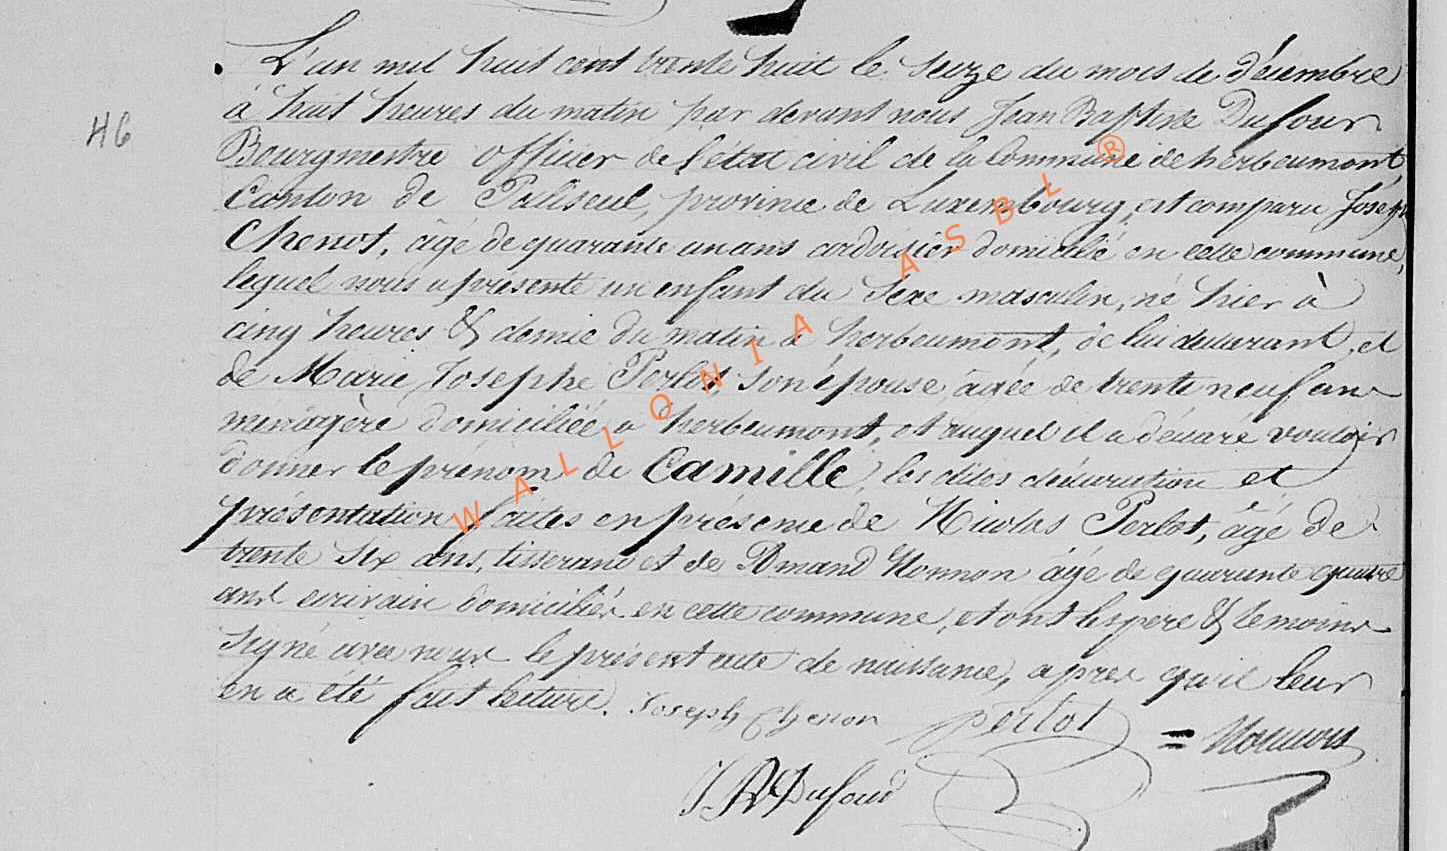 L'an mil huit cent trente huit le seize du mois de décembre
46
à huit heures du matin par devant nous Jean Baptiste Dufour
Bourgmestre officier de l'état civil de la Commune de herbeumont,
Canton de Paliseul, province de Luxembourg, est comparu Joseph
Chenot, âgé de quarante un ans ardoisier domicilié en cette commune,
lequel nous a présenté un enfant du sexe masculin, né hier à
cinq heures & demie du matin à herbeumont, de lui déclarant, et
de Marie Josephe Perlot, son épouse, âgée de trente neuf ans
ménagère domiciliée à herbeumont, et auquel il a déclaré vouloir
donner le prénom de Camille, les dites déclaration et
présentation faites en présence de Nicolas Perlot, âgé de
trente six ans, tisserand et de Amand Nonnon âgé de quarante quatre
ans écrivain domiciliés en cette commune, et ont les père & témoins
signé avec nous le présent acte de naissance, après qu'il leur
en a été fait lecture. Joseph Chenon perlot = Nonnon
JB Dufour
WALLONIA ASBL ®